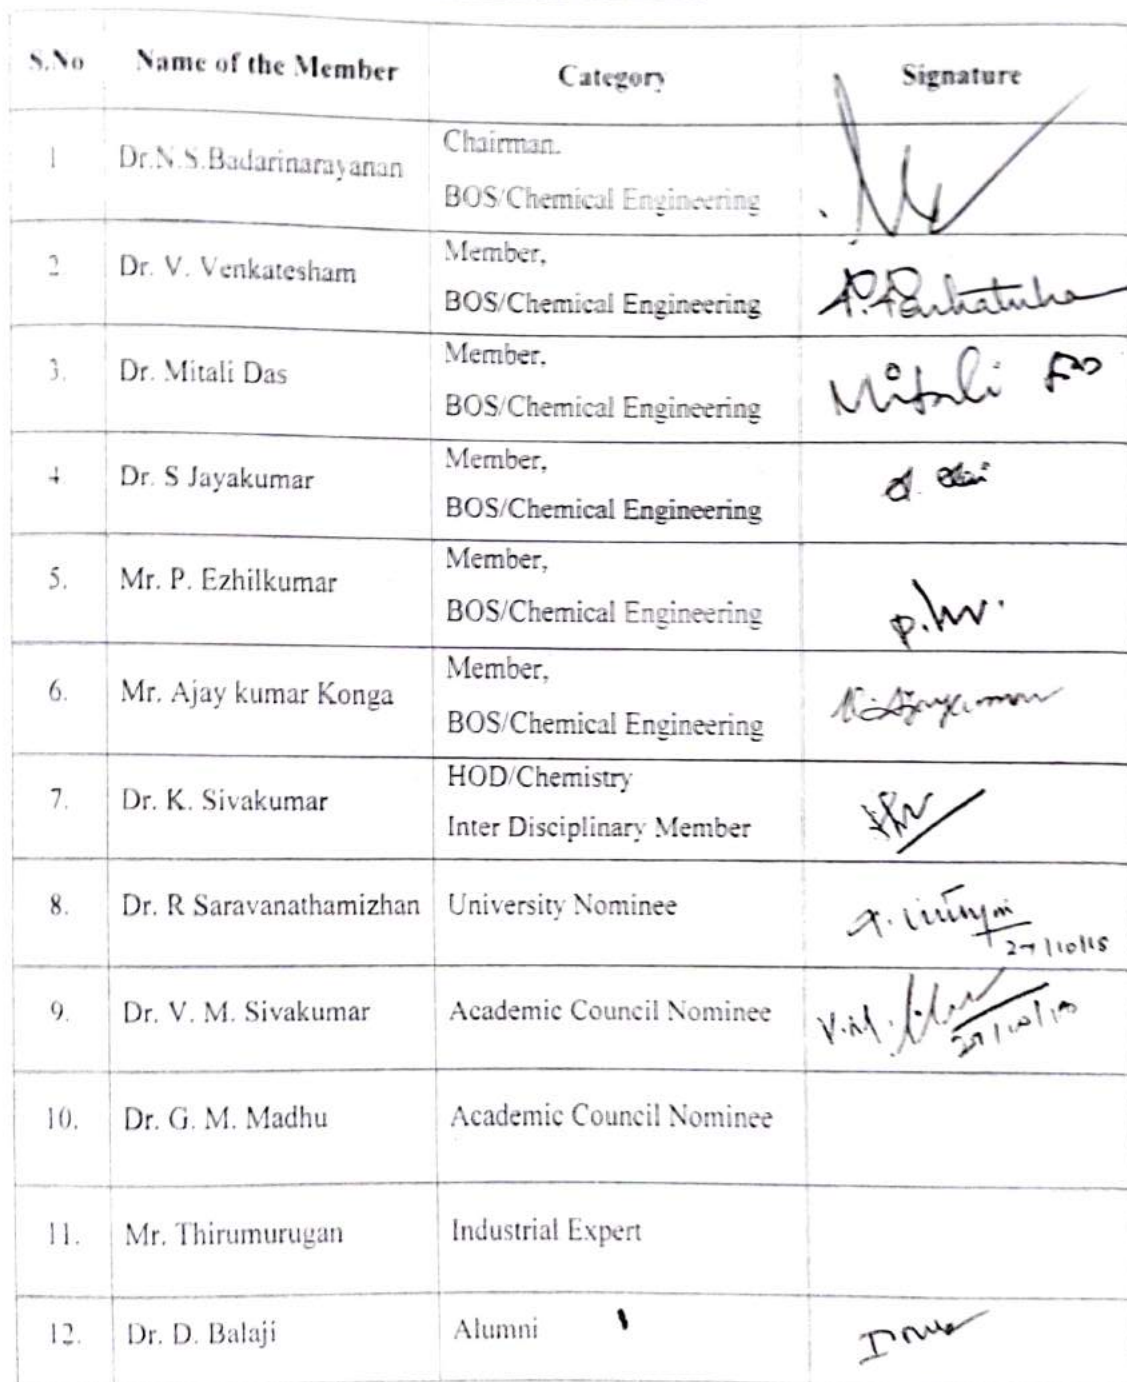 S.No Name of the Member Category Signature
1 Dr.N.S.Badarinarayanan Chairman.
BOS/Chemical Engineering
2 Dr. V. Venkatesham Member,
BOS/Chemical Engineering
3. Dr. Mitali Das Member,
BOS/Chemical Engineering Mitali Das
4 Dr. S Jayakumar Member,
BOS/Chemical Engineering
5. Mr. P. Ezhilkumar Member,
BOS/Chemical Engineering
6. Mr. Ajay kumar Konga Member,
BOS/Chemical Engineering K. Ajaykumar
7. Dr. K. Sivakumar HOD/Chemistry
Inter Disciplinary Member
8. Dr. R Saravanathamizhan University Nominee
27/10/18
9. Dr. V. M. Sivakumar Academic Council Nominee V.M.
10. Dr. G. M. Madhu Academic Council Nominee
11. Mr. Thirumurugan Industrial Expert
12. Dr. D. Balaji Alumni